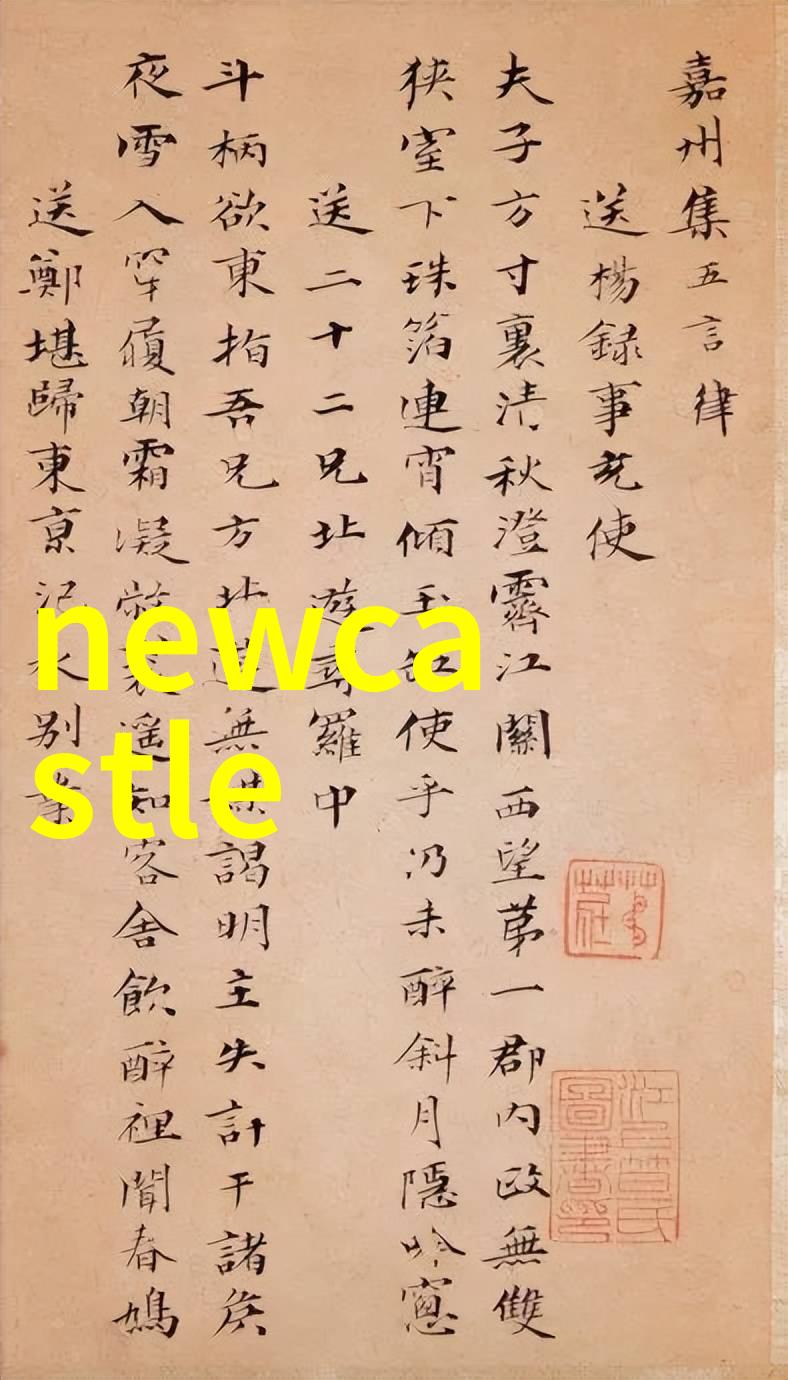 嘉州集五言律
送楊録事充使
夫子方寸裏清秋澄霽江關西望苐一郡内政無雙
狹室下珠箔連宵傾玉缸使乎仍未醉斜月隱吟窻
送二十二兄北遊尋羅中
斗柄欲東指吾兄方北遊無媒謁明主失計干諸侯
夜雪入穿履朝霜凝敝裘遥知客舍飲醉裡聞春鳩
送鄭堪歸東京汜水别業
江上笪氏
圖書印
newca
stle